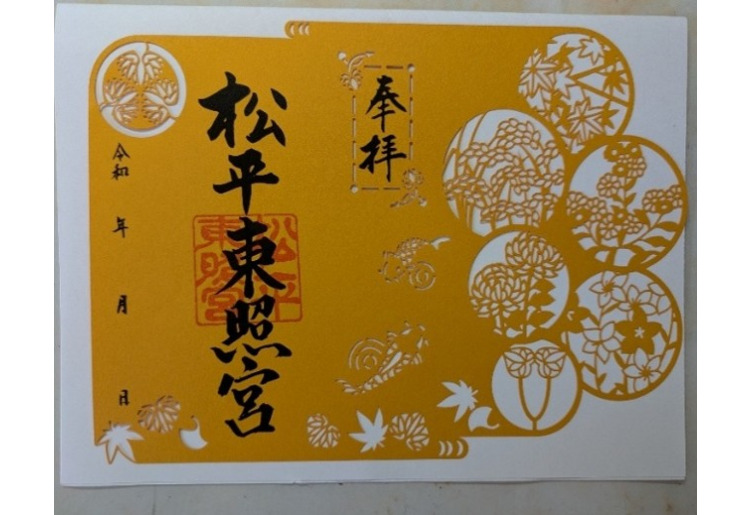 奉拝
松平東照宮
松平東照宮
令和 年 月 日